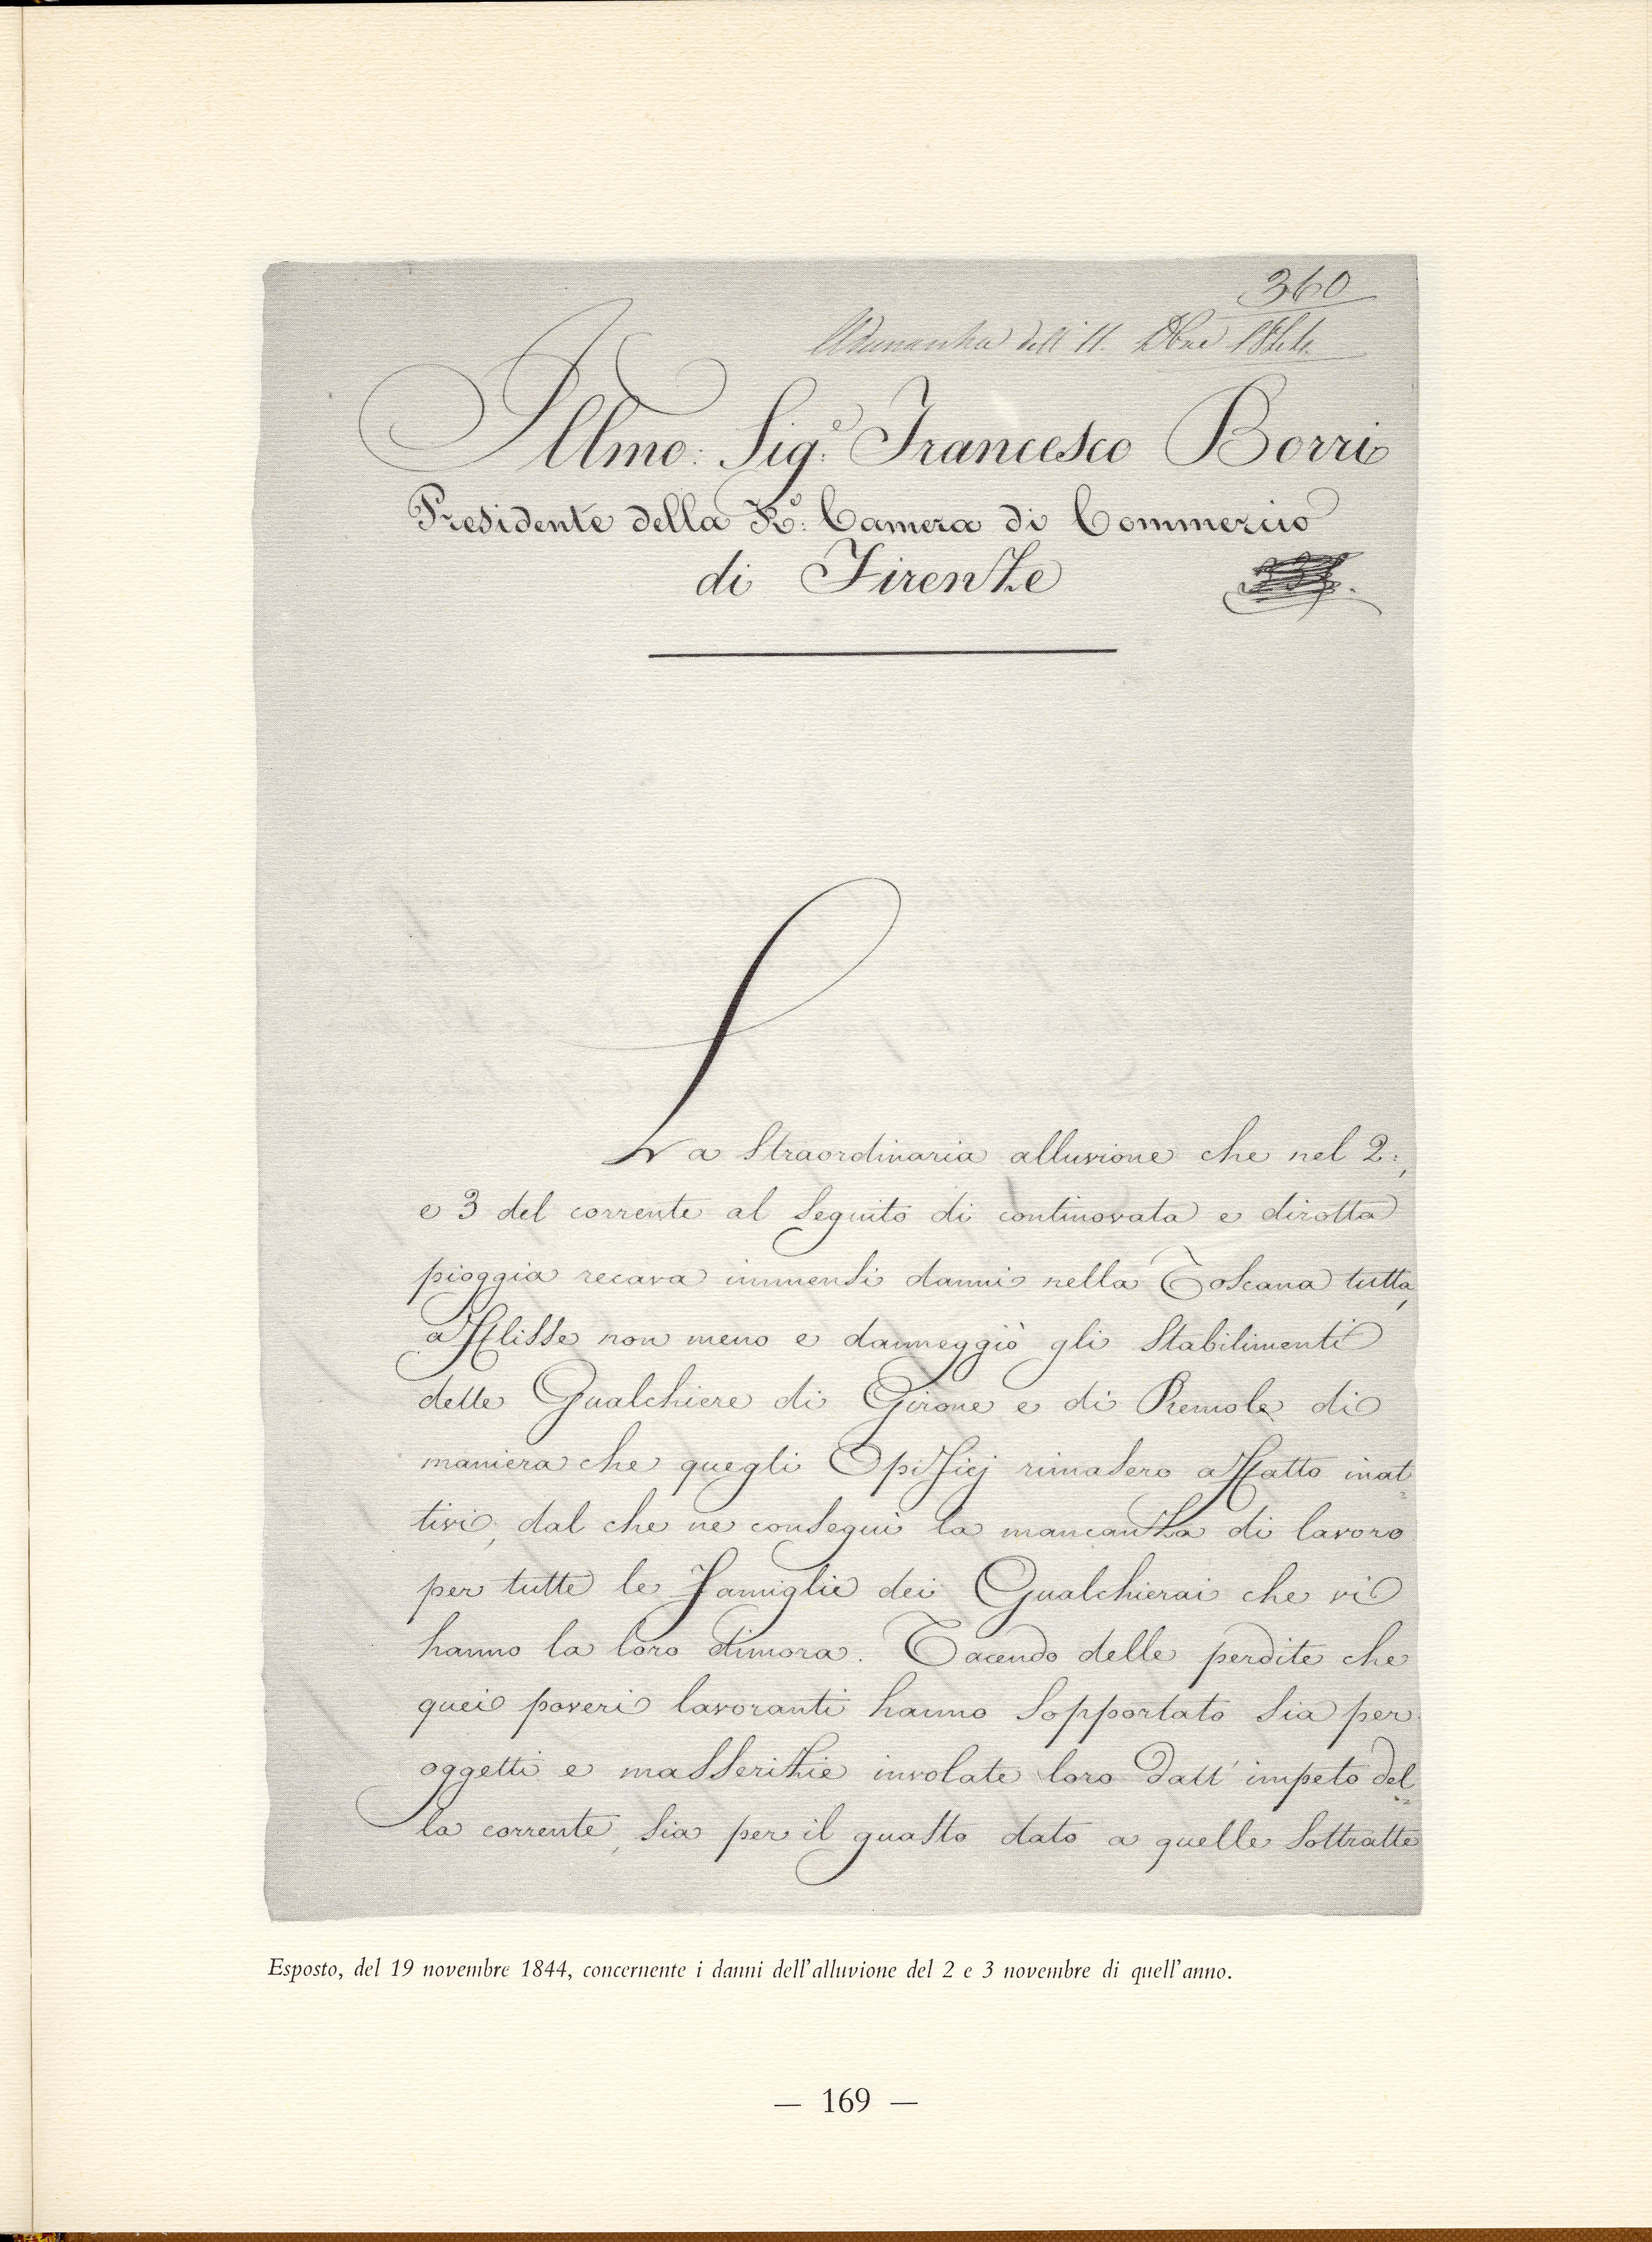 360
Adunanza dell' 11. Xbre 1844.
Illmo: Sig.e Francesco Borri
Presidente della R.e: Camera di Commercio
di Firenze
La straordinaria alluvione che nel 2:,
e 3 del corrente al seguito di continovata e dirotta
pioggia recava immensi danni nella Toscana tutta,
afflisse non meno e danneggiò gli stabilimenti
delle Gualchiere di Girone e di Remole di
maniera che quegli Opificj rimasero affatto inat=
tivi, dal che ne conseguì la mancanza di lavoro
per tutte le Famiglie dei Gualchierai che vi
hanno la loro dimora. Tacendo delle perdite che
quei poveri lavoranti hanno sopportato sia per
oggetti e masserizie involate loro dall' impeto del=
la corrente, sia per il guasto dato a quelle sottratte
Esposto, del 19 novembre 1844, concernente i danni dell'alluvione del 2 e 3 novembre di quell'anno.
— 169 —